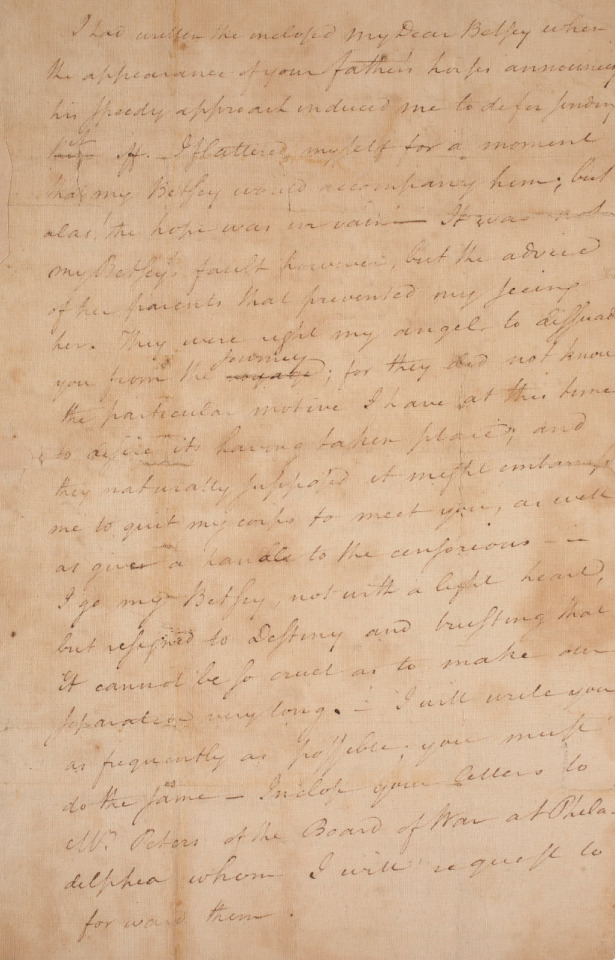 I had written the inclosed my Dear Betsey when
the appearance of your father's horses announced
his speedy approach induced me to defer sending
it off. I flattered myself for a moment
that my Betsey would accompany him; but
alas! the hope was in vain — It was not
my Betsey's fault however, but the advice
of her parents that prevented my seeing
her. They were right my angel to dissuade
you from the journey voyage; for they did not know
the particular motive I have at this time
to desire its having taken place; and
they naturally supposed it might embarrass
me to quit my corps to meet you, as well
as give a handle to the censorious — —
I go my Betsey, not with a light heart,
but resigned to Destiny and trusting that
it cannot be so cruel as to make our
separation very long. — I will write you
as frequently as possible; you must
do the same — Inclose your letters to
Mr. Peters of the Board of War at Phila-
delphea whom I will request to
forward them.